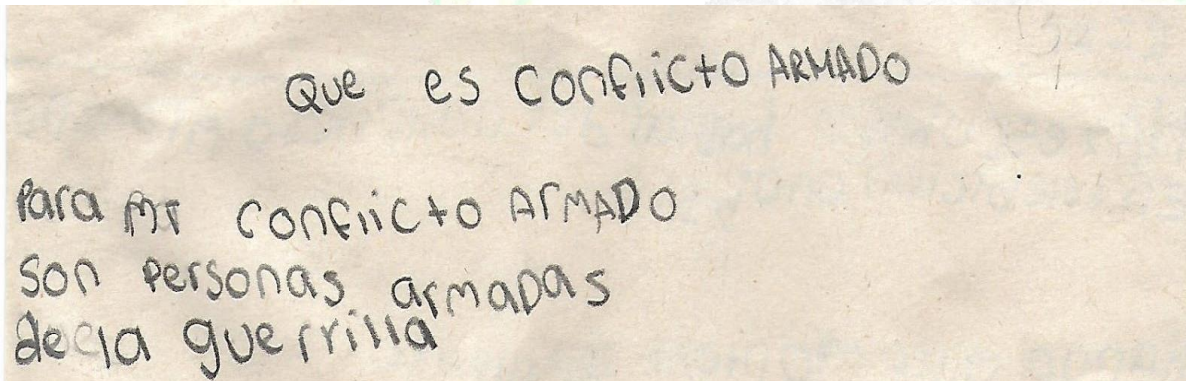 Que es conflicto ARMADO
Para mi conflicto ArMADO
son Personas armaDas
de la guerrilla